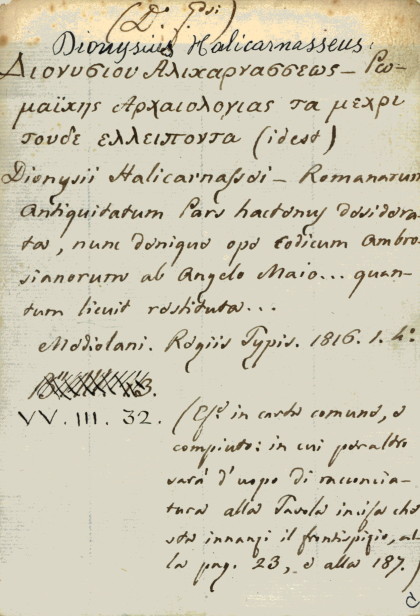 (D.r G.psi)
Dionysius Halicarnasseus.
Διονυσιου Αλικαρνασσεως – Ρω-
μαϊκης Αρχαιολογιας τα μεχρι
τουδε ελλειποντα (idest)
Dionysii Halicarnassei – Romanarum
Antiquitatum Pars hactenus desidera-
ta, nunc denique ope Codicum Ambro-
sianorum ab Angelo Maio... quan-
tum licuit restituta...
Mediolani. Regiis Typis. 1816. 1. 4.°
VV. III. 32.
(Es.e in carta comune, e
compiuto: in cui peraltro
sarà d'uopo di racconcia-
tura alla Tavola incisa che
sta innanzi il frontispizio, al-
la pag. 23, e alla 187.)